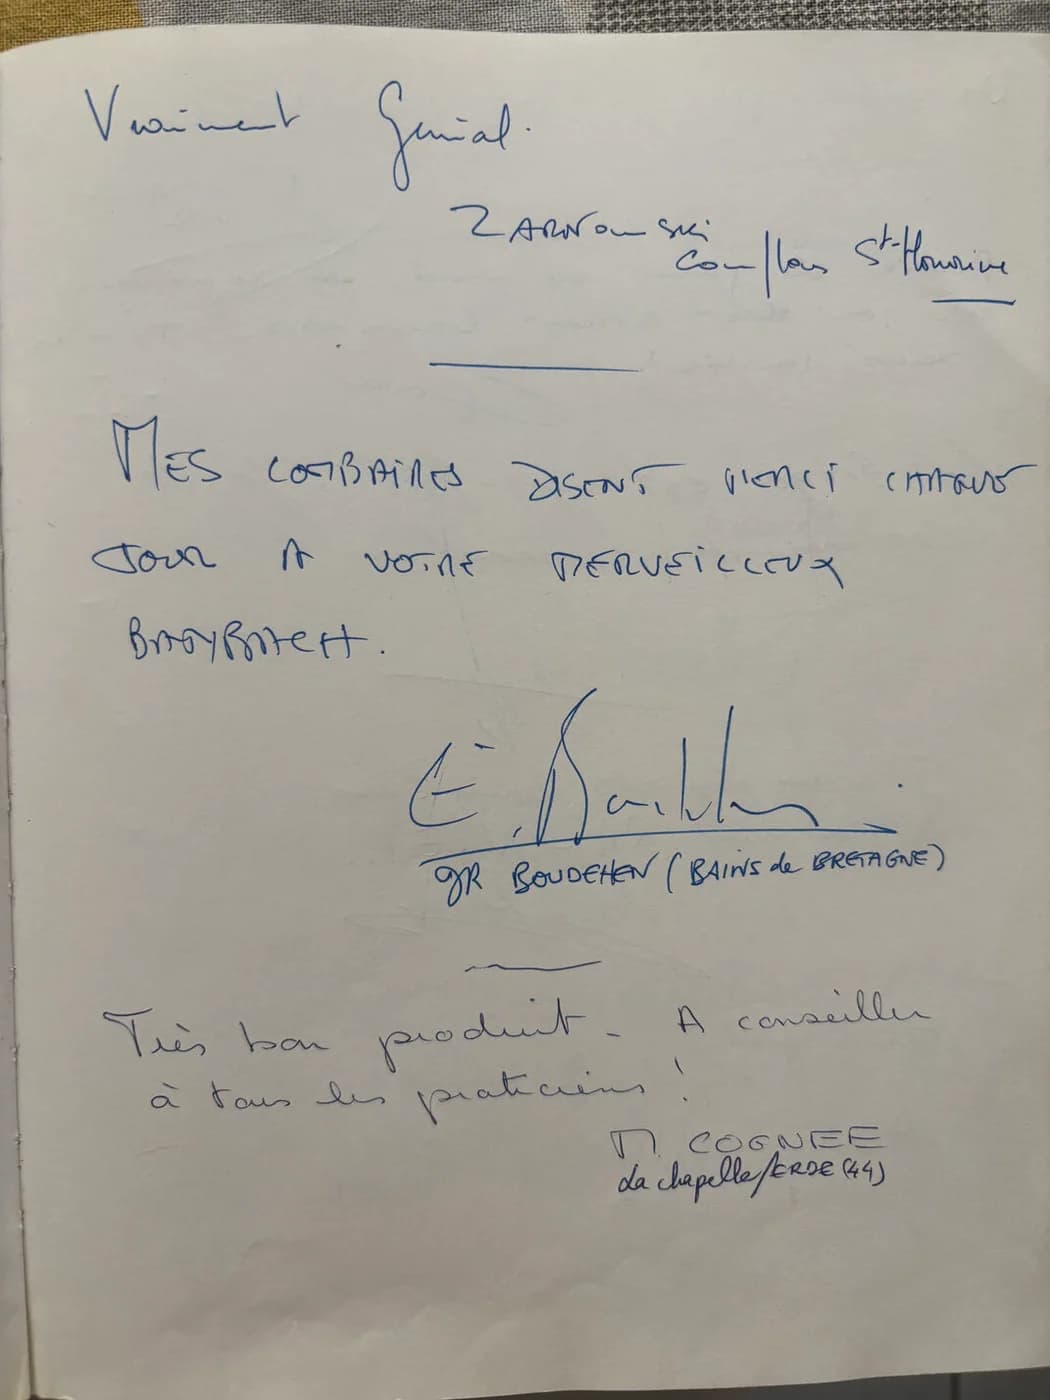 Vraiment Génial.
ZARNOWSKI
Conflans St-Honorine
MES LOMBAIRES DISENT MERCI CHAQUE
JOUR A VOTRE MERVEILLEUX
BABYBATCH.
E.
JR BOUDEHEN (BAINS de BRETAGNE)
Très bon produit - A conseiller
à tous les praticiens !
M COGNEE
La chapelle/ERDE (44)